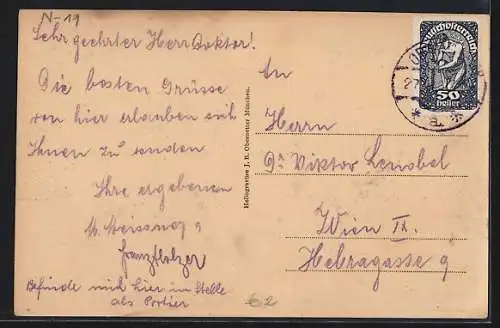 N-19
Sehr geehrter Herr Doktor!
Die besten Grüsse
von hier erlauben sich
Ihnen zu senden
Ihre ergebenen
Franz Holzer
Befinde mich hier in Stelle
als Portier
Heliogravüre J. B. Obernetter München.
Deutschösterreich
50
heller
27
* a *
An
Herrn
Dr Viktor Lenobel
Wien IX.
Hebragasse 9
62